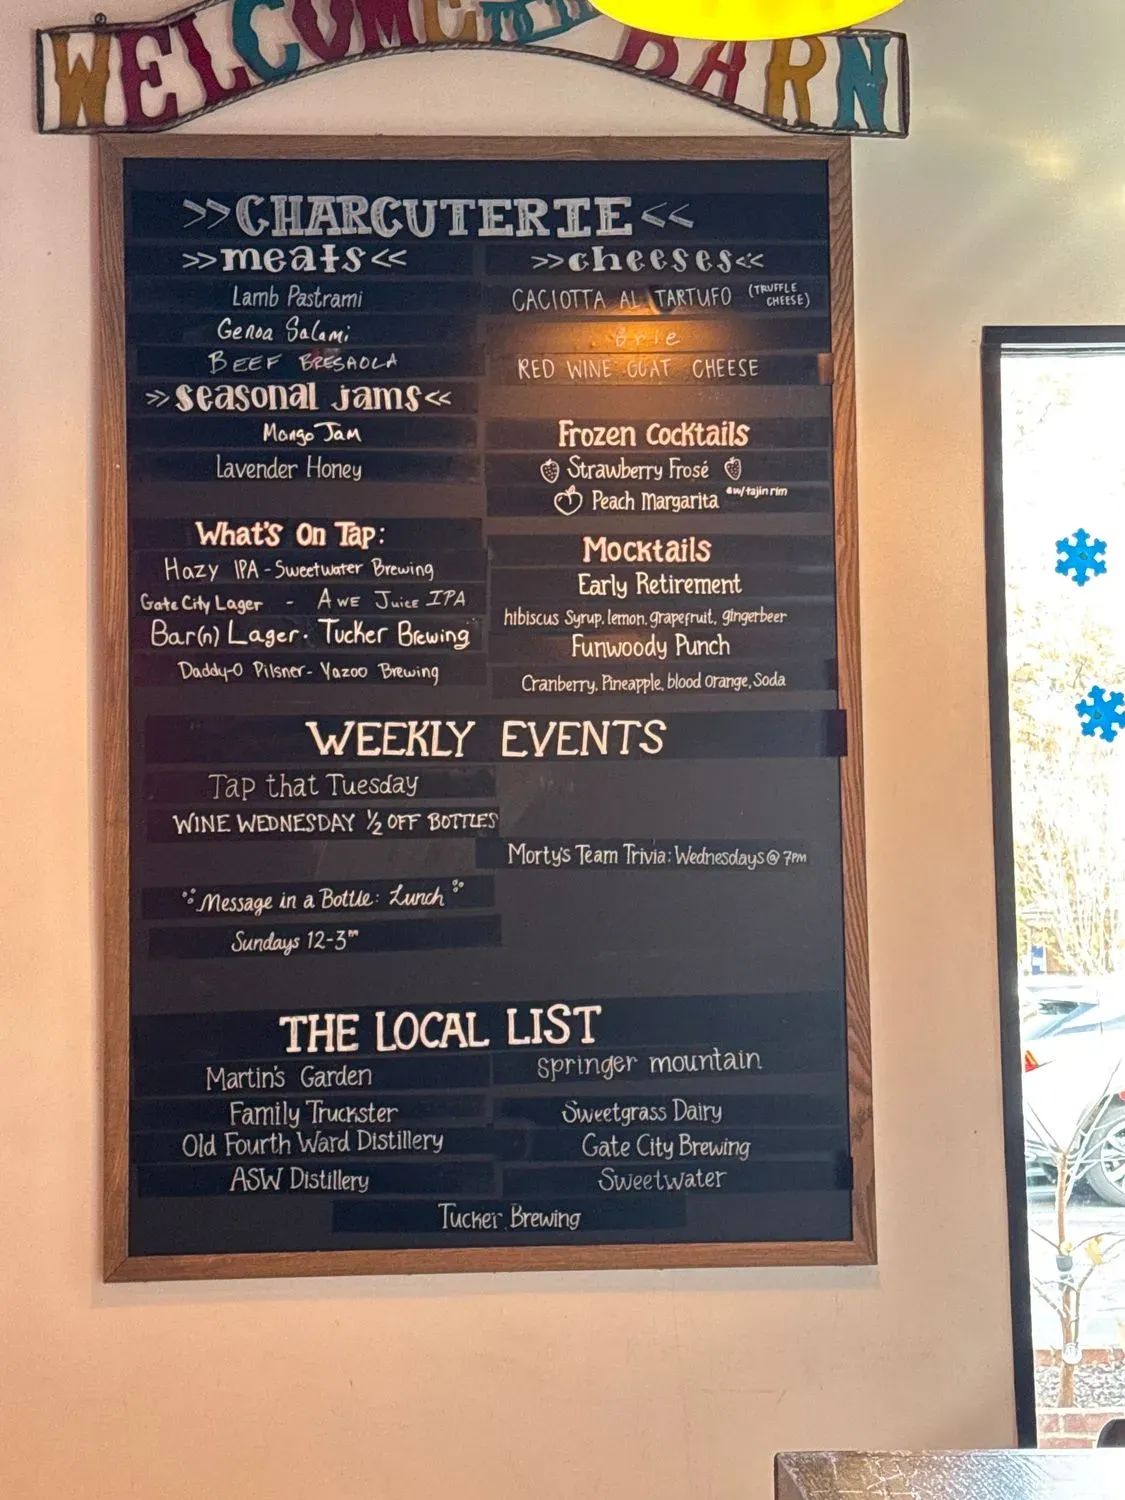 WELCOME TO THE BARN
>>CHARCUTERIE<<
>>meats<<
Lamb Pastrami
Genoa Salami
BEEF BRESAOLA
>>seasonal jams<<
Mango Jam
Lavender Honey
>>cheeses<<
CACIOTTA AL TARTUFO (TRUFFLE CHEESE)
Brie
RED WINE GOAT CHEESE
Frozen Cocktails
Strawberry Frosé
Peach Margarita w/tajin rim
What's On Tap:
Hazy IPA - Sweetwater Brewing
Gate City Lager - AWE JUICE IPA
Bar(n) Lager - Tucker Brewing
Daddy-O Pilsner - Yazoo Brewing
Mocktails
Early Retirement
hibiscus Syrup, lemon, grapefruit, gingerbeer
Funwoody Punch
Cranberry, Pineapple, blood orange, Soda
WEEKLY EVENTS
Tap that Tuesday
WINE WEDNESDAY ½ OFF BOTTLES
Morty's Team Trivia: Wednesdays @ 7pm
Message in a Bottle: Lunch
Sundays 12-3pm
THE LOCAL LIST
Martin's Garden
Family Truckster
Old Fourth Ward Distillery
ASW Distillery
springer mountain
Sweetgrass Dairy
Gate City Brewing
Sweetwater
Tucker Brewing